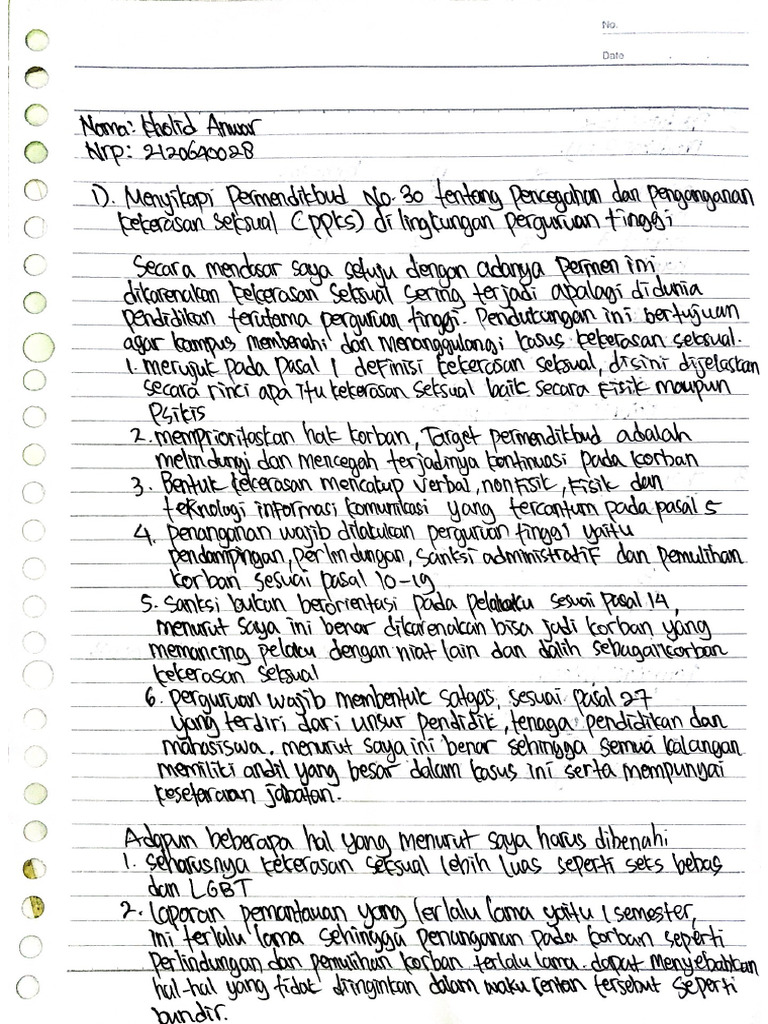 No.
Date
Nama: Kholid Anwar
Nrp: 2120640028
1). Menyikapi Permendikbud No. 30 tentang pencegahan dan penganganan
kekerasan seksual (PPKS) di lingkungan perguruan tinggi
Secara mendasar saya setuju dengan adanya permen ini
dikarenakan kekerasan seksual sering terjadi apalagi didunia
pendidikan terutama perguruan tinggi. Pendukungan ini bertujuan
agar kampus membenahi dan menanggulangi kasus kekerasan seksual.
1. merujuk pada Pasal 1 definisi kekerasan seksual, disini dijelaskan
secara rinci apa itu kekerasan seksual baik secara fisik maupun
psikis
2. memprioritaskan hak korban, Target permendikbud adalah
melindungi dan mencegah terjadinya kontinuasi pada korban
3. Bentuk kekerasan mencakup verbal, nonfisik, fisik dan
teknologi informasi komunikasi yang tercantum pada pasal 5
4. penanganan wajib dilakukan perguruan tinggi yaitu
pendampingan, perlindungan, sanksi administratif dan pemulihan
korban sesuai pasal 10-19
5. sanksi bukan berorientasi pada pelaku sesuai pasal 14,
menurut saya ini benar dikarenakan bisa jadi korban yang
memancing pelaku dengan niat lain dan dalih sebagai korban
kekerasan seksual
6. perguruan wajib membentuk satgas, sesuai pasal 27
yang terdiri dari unsur pendidik, tenaga pendidikan dan
mahasiswa. menurut saya ini benar sehingga semua kalangan
memiliki andil yang besar dalam kasus ini serta mempunyai
kesetaraan jabatan.
Adapun beberapa hal yang menurut saya harus dibenahi
1. seharusnya kekerasan seksual lebih luas seperti seks bebas
dan LGBT
2. laporan pemantauan yang terlalu lama yaitu 1 semester,
ini terlalu lama sehingga penanganan pada korban seperti
perlindungan dan pemulihan korban terlalu lama. dapat menyebabkan
hal-hal yang tidak diinginkan dalam waku rentan tersebut seperti
bundir.